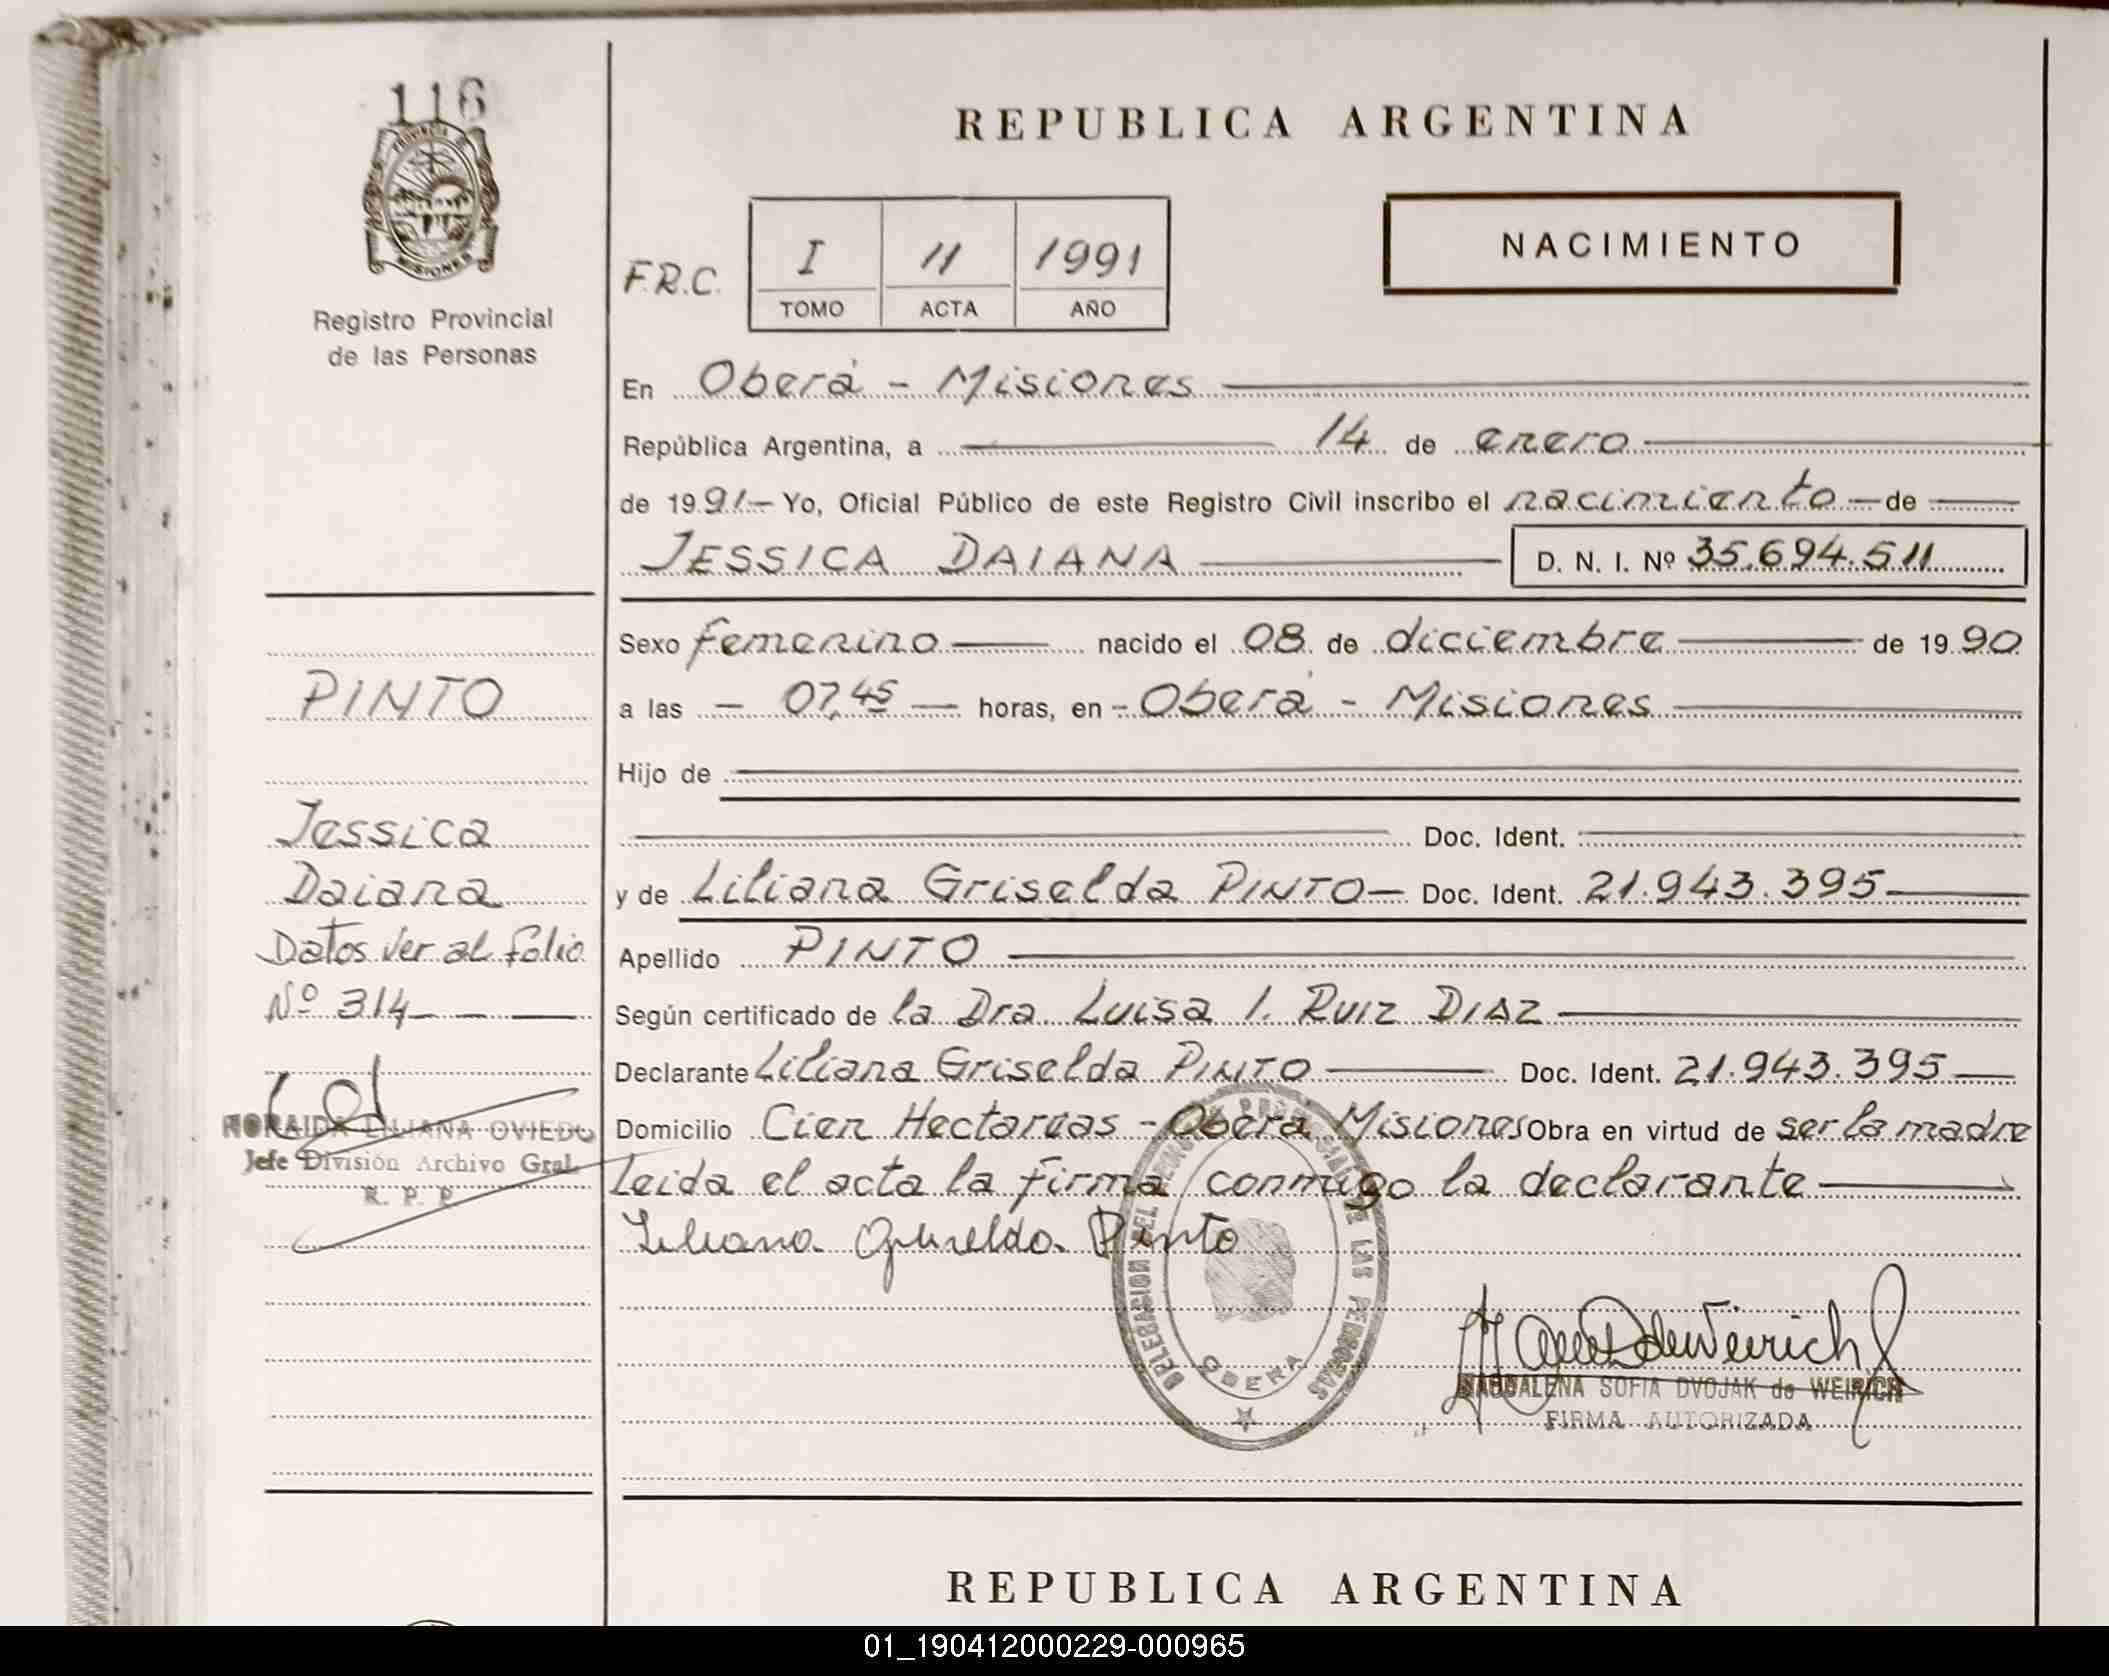 116
PROVINCIA DE
MISIONES
Registro Provincial
de las Personas
REPUBLICA ARGENTINA
NACIMIENTO
F.R.C.
I 11 1991
TOMO ACTA AÑO
En Oberá - Misiones
República Argentina, a 14 de enero
de 1991- Yo, Oficial Público de este Registro Civil inscribo el nacimiento de
JESSICA DAIANA D. N. I. Nº 35.694.511
Sexo femenino nacido el 08 de diciembre de 1990
a las - 07,45 - horas, en - Oberá - Misiones
Hijo de
Doc. Ident.
y de Liliana Griselda PINTO- Doc. Ident. 21.943.395
Apellido PINTO
Según certificado de la Dra. Luisa I. RUIZ DIAZ
Declarante Liliana Griselda PINTO Doc. Ident. 21.943.395
Domicilio Cien Hectareas - Oberá Misiones Obra en virtud de ser la madre
Leida el acta la firma conmigo la declarante
Liliana Griselda Pinto
PINTO
Jessica
Daiana
Datos ver al folio
Nº 314
LILIANA OVIEDO
Jefe División Archivo Gral.
R. P. P
DELEGACION DEL REGISTRO PROVINCIAL DE LAS PERSONAS
OBERA
MAGDALENA SOFIA DVOJAK de WEIRICH
FIRMA AUTORIZADA
REPUBLICA ARGENTINA
01_190412000229-000965